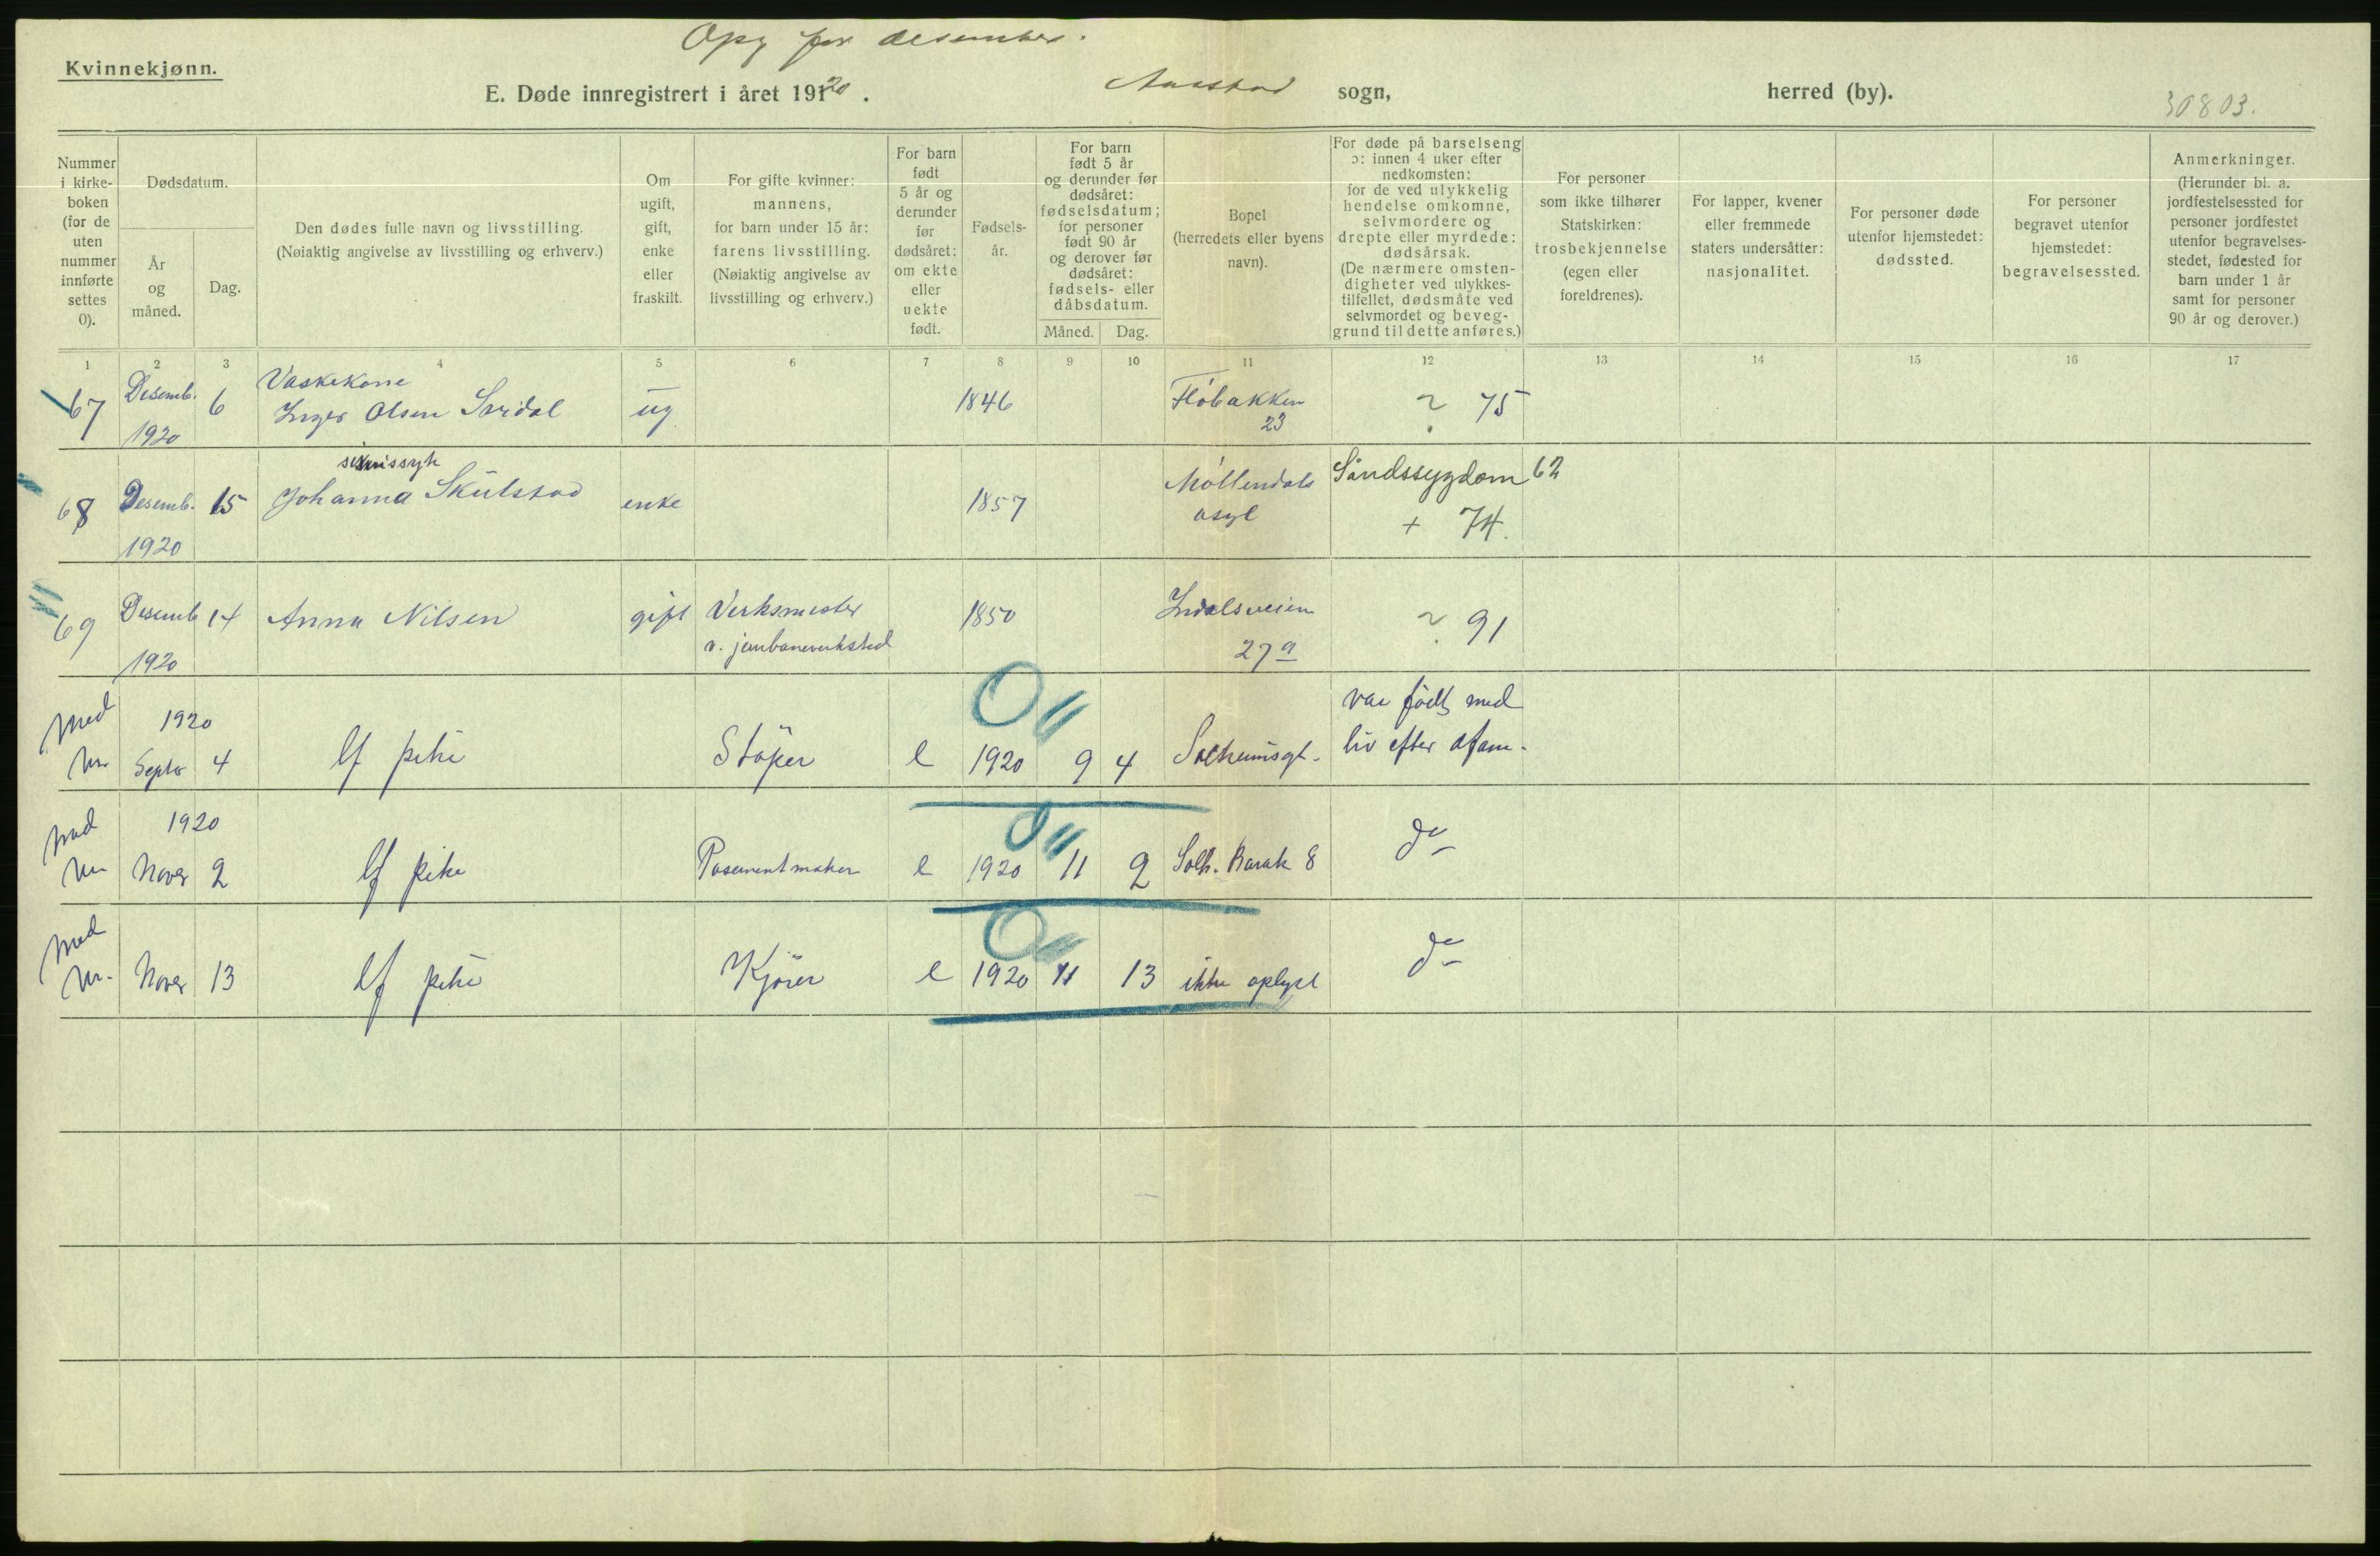 Opg for desember.
Kvinnekjønn.
E. Døde innregistrert i året 1920.
Aarstad sogn, herred (by).
30803.
Nummer i kirkeboken (for de uten nummer innførte settes 0).
Dødsdatum.
År og måned.
Dag.
Den dødes fulle navn og livsstilling.
(Nøiaktig angivelse av livsstilling og erhverv.)
Om ugift, gift, enke eller fraskilt.
For gifte kvinner: mannens, for barn under 15 år: farens livsstilling.
(Nøiaktig angivelse av livsstilling og erhverv.)
For barn født 5 år og derunder før dødsåret: om ekte eller uekte født.
Fødselsår.
For barn født 5 år og derunder før dødsåret: fødselsdatum; for personer født 90 år og derover før dødsåret: fødsels- eller dåbsdatum.
Måned. Dag.
Bopel (herredets eller byens navn).
For døde på barselseng ɔ: innen 4 uker efter nedkomsten: for de ved ulykkelig hendelse omkomne, selvmordere og drepte eller myrdede: dødsårsak.
(De nærmere omstendigheter ved ulykkestilfellet, dødsmåte ved selvmordet og beveggrund til dette anføres.)
For personer som ikke tilhører Statskirken: trosbekjennelse (egen eller foreldrenes).
For lapper, kvener eller fremmede staters undersåtter: nasjonalitet.
For personer døde utenfor hjemstedet: dødssted.
For personer begravet utenfor hjemstedet: begravelsessted.
Anmerkninger.
(Herunder bl. a. jordfestelsessted for personer jordfestet utenfor begravelsesstedet, fødested for barn under 1 år samt for personer 90 år og derover.)
1 2 3 4 5 6 7 8 9 10 11 12 13 14 15 16 17
67 Desemb. 1920 6 Vaskekone Inger Olsen ug 1846 Flöbakken 23 ? 75
68 Desemb. 1920 15 sinnssyk Johanna Skulstad enke 1857 Möllendals asyl Sindssygdom 62 + 74.
69 Desemb 1920 14 Anna Nilsen gift Verksmester v. jernbaneverksted 1850 Indalsveien 27a ? 91
1920 Septbr 4 pike Stöper e 1920 9 4 Solheimsgt. var født med liv efter
1920 Novbr 2 pike Posementmaker e 1920 11 2 Solh. Barak 8 do
Novbr 13 pike Kjörer e 1920 11 13 ikke oplyst do